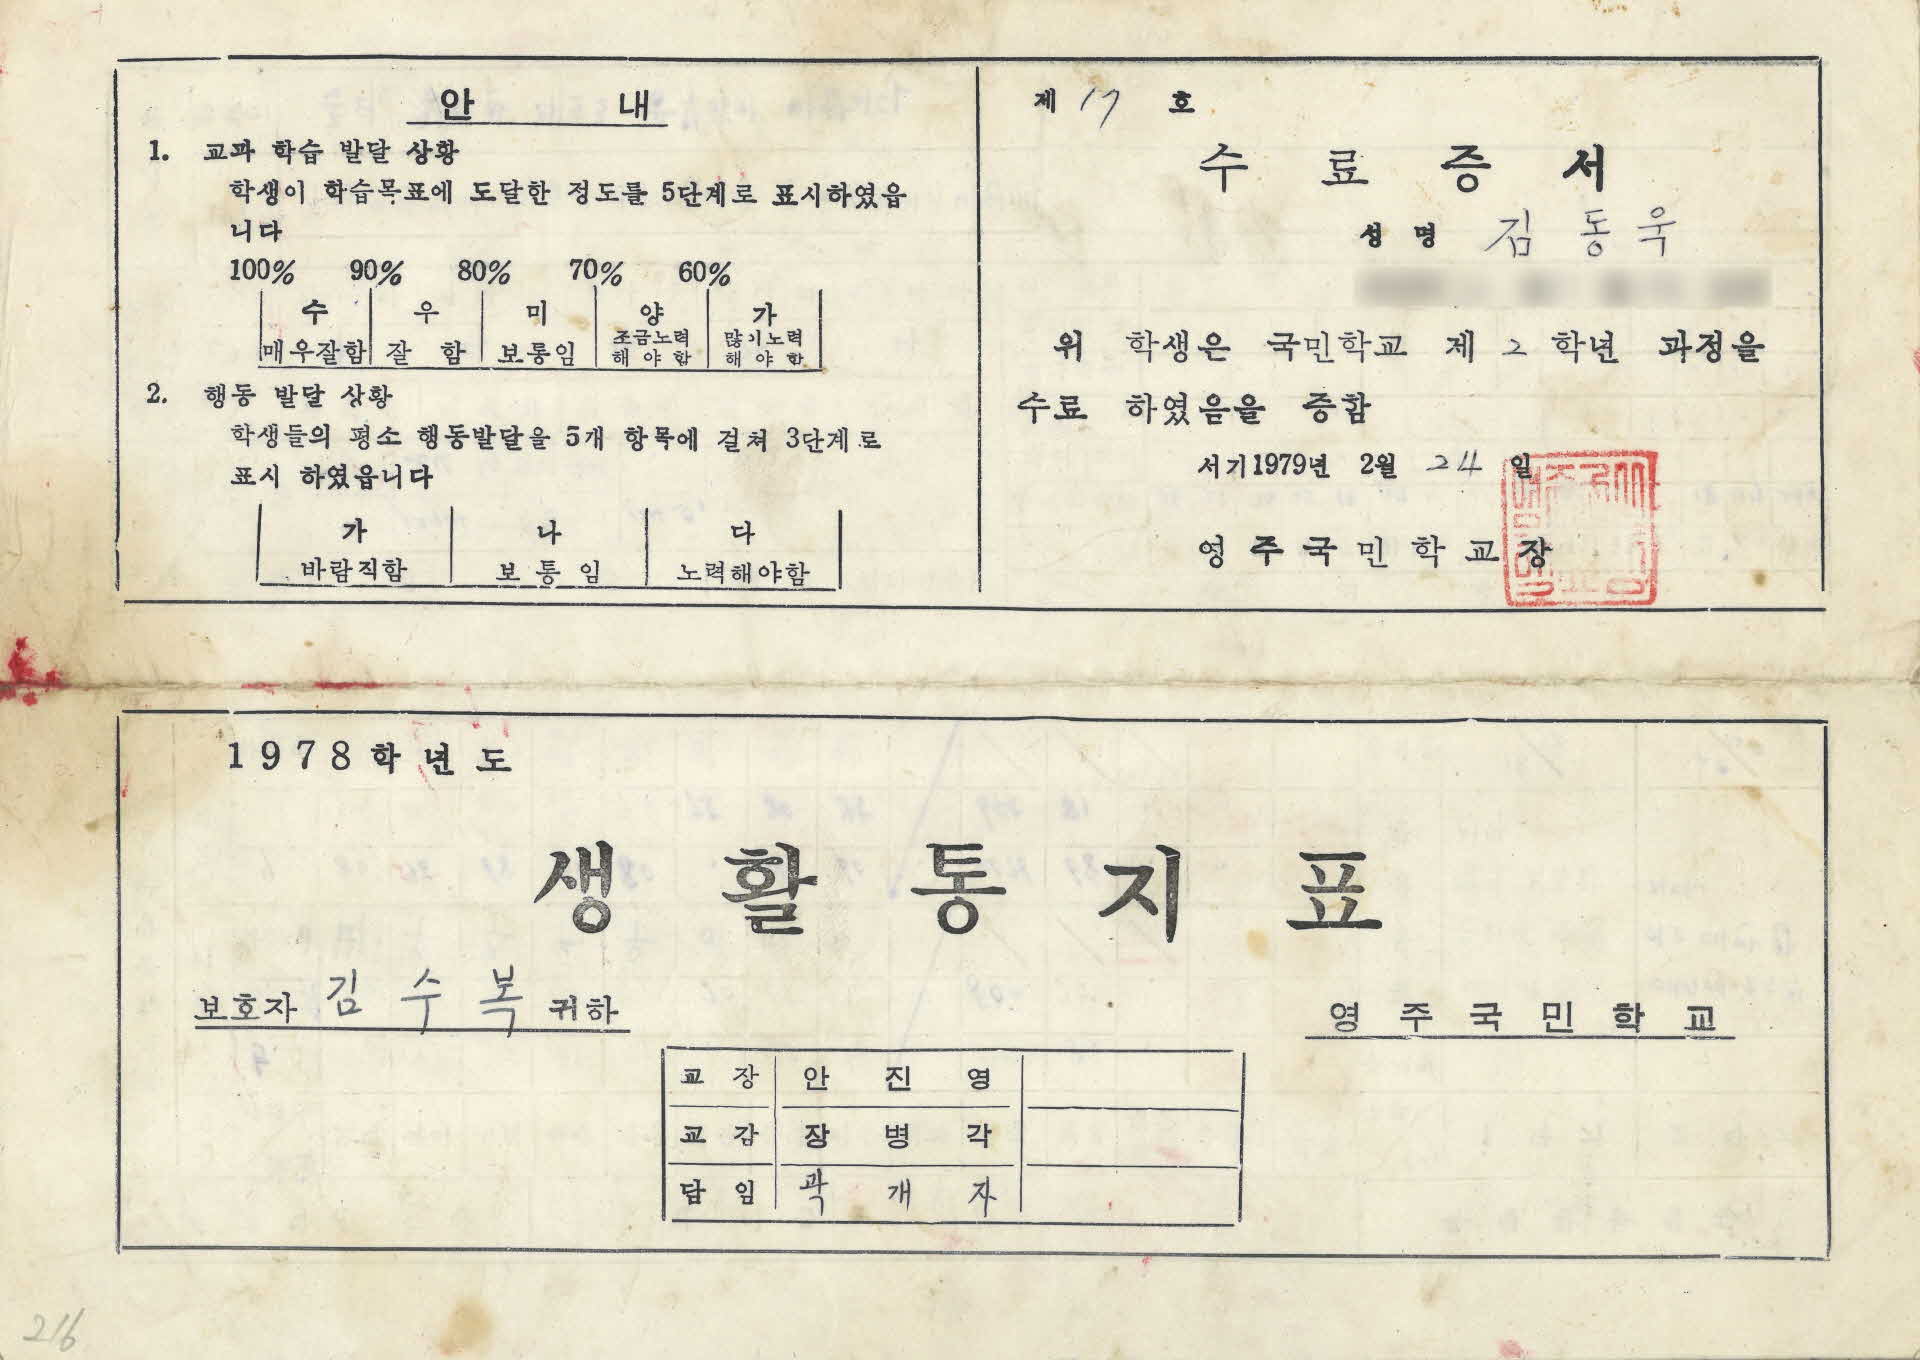 안 내
1. 교과 학습 발달 상황
학생이 학습목표에 도달한 정도를 5단계로 표시하였읍
니다
100% 90% 80% 70% 60%
수 우 미 양 가
매우잘함 잘 함 보통임 조금노력해야함 많이노력해야함
2. 행동 발달 상황
학생들의 평소 행동발달을 5개 항목에 걸쳐 3단계로
표시 하였읍니다
가 나 다
바람직함 보통임 노력해야함
제 17 호
수 료 증 서
성 명 김 동 욱
위 학생은 국민학교 제 2 학년 과정을
수료 하였음을 증함
서기1979년 2월 24 일
영주국민학교장
1978학년도
생 활 통 지 표
보호자 김 수 복 귀하
영 주 국 민 학 교
교 장 안 진 영
교 감 장 병 각
담 임 곽 개 자
216